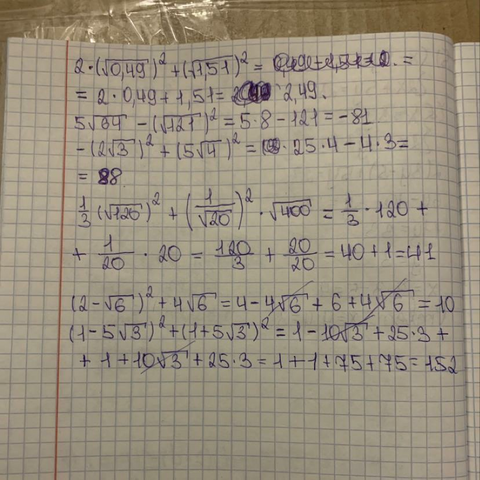 2·(√0,49)² + (√1,51)² = =
= 2·0,49+1,51= 2,49.
5√64 − (√121)² = 5·8 − 121 = −81
−(2√3)² + (5√4)² = 25·4 − 4·3=
= 88
1/3 (√120)² + (1/√20)² · √400 = 1/3 · 120 +
+ 1/20 · 20 = 120/3 + 20/20 = 40 + 1 = 41
(2−√6)² + 4√6 = 4 − 4√6 + 6 + 4√6 = 10
(1−5√3)² + (1+5√3)² = 1 − 10√3 + 25·3 +
+ 1 + 10√3 + 25·3 = 1 + 1 + 75 + 75 = 152